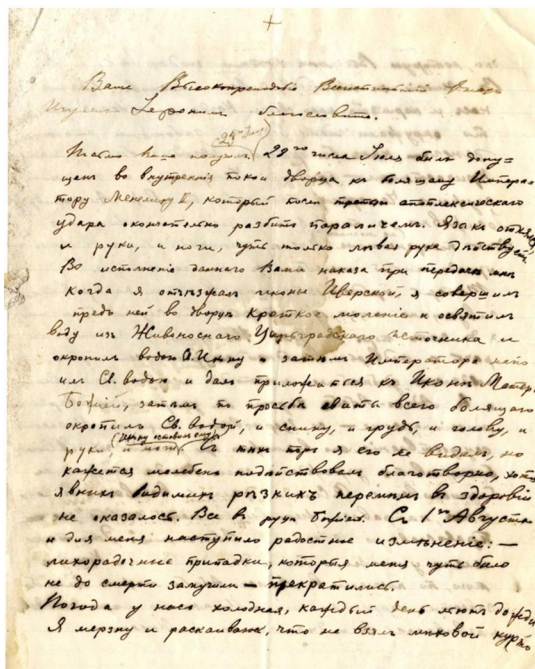 Ваше Высокопреподобие Всечестнейший
Иероним благословите.
29го числа Июля былъ допу=
щенъ во внутренніе покои дворца къ болящему Импера=
тору Менелику II, который после третьяго апоплексическаго
удара окончательно разбитъ параличемъ. Языкъ отнялся
и руки, и ноги, чуть только левая рука действуетъ.
Во исполненіе даннаго Вами наказа при передаче мне
когда я отъезжалъ иконы Иверской, я совершилъ
предъ ней во дворце краткое моленіе и освятилъ
воду изъ Живоноснаго Цареградскаго источника и
окропилъ водою и затемъ Императора
св. водою и далъ приложиться къ Иконе Матери
Божіей, затемъ по просьбе свиты всего болящаго
окропилъ Св. водой, и спину, и грудь, и голову, и
руки, и ноги. Съ техъ поръ я его не видалъ, но
кажется молебенъ подействовалъ благотворно, хотя
явныхъ видимыхъ резкихъ переменъ въ здоровіи
не оказалось. Все въ руце Божіей. Съ 1го Августа
и для меня наступило радостное измененіе: —
лихорадочные припадки, которыя меня чуть было
не до смерти замучили — прекратились.
Погода у насъ холодная, каждый день льютъ дожди
Я мерзну и раскаиваюсь, что не взялъ меховой